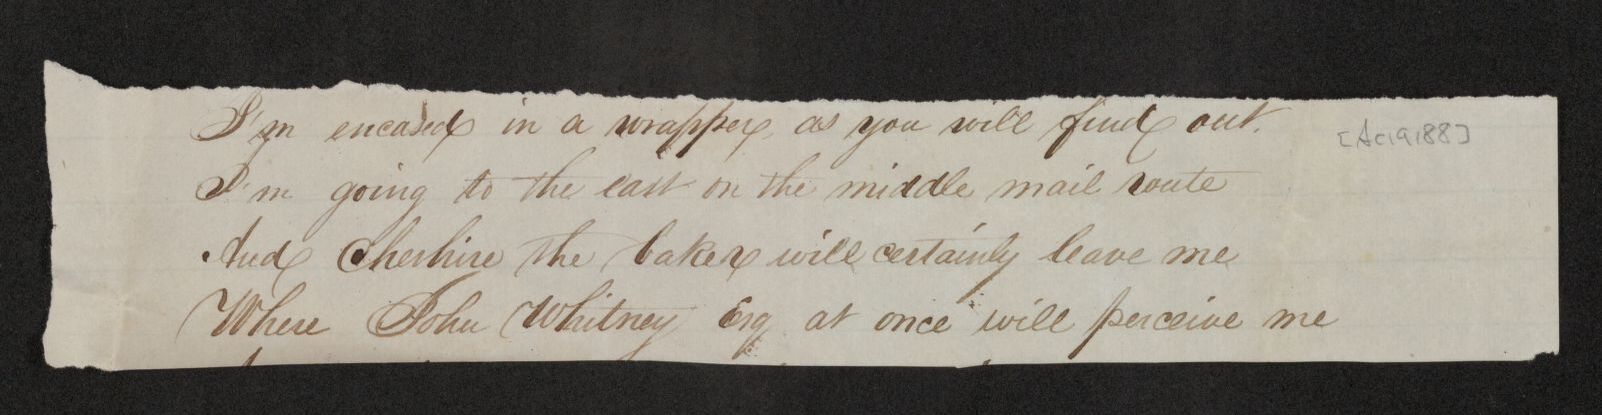 I'm encased in a wrapper, as you will find out.
[Ac 9188]
I'm going to the east on the middle mail route
And Cheshire the baker will certainly leave me
Where John Whitney Esq at once will perceive me